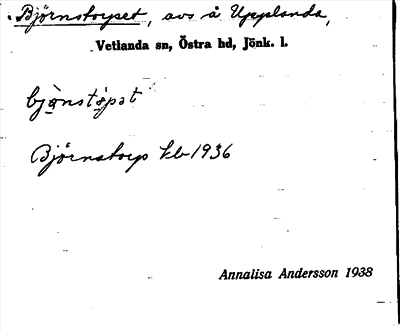 Björnstorpet, avs å Upplanda,
Vetlanda sn, Östra hd, Jönk. l.
bjö̀nstɔ̀pət
Björnstorp kb 1936
Annalisa Andersson 1938